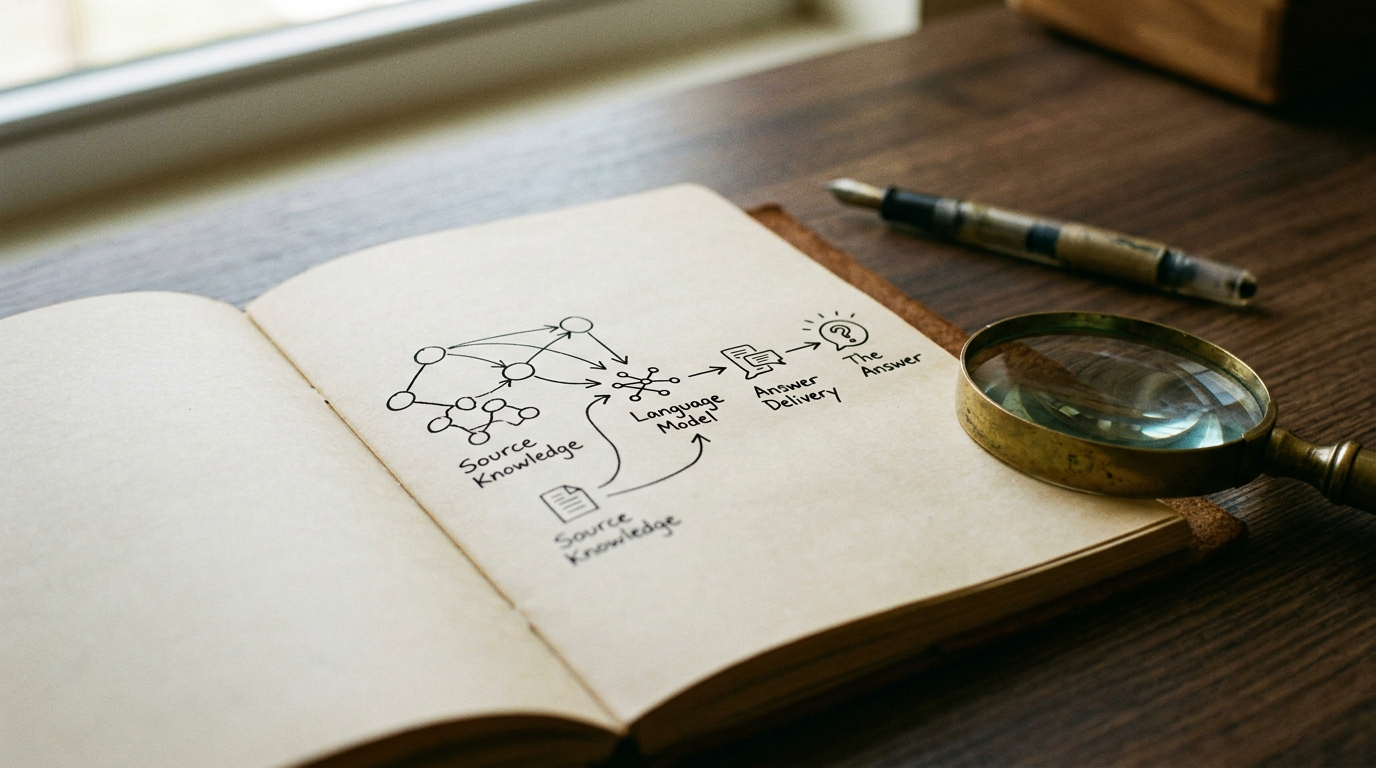 Source
Knowledge
Language
Model
Answer
Delivery
?
The
Answer
Source
Knowledge